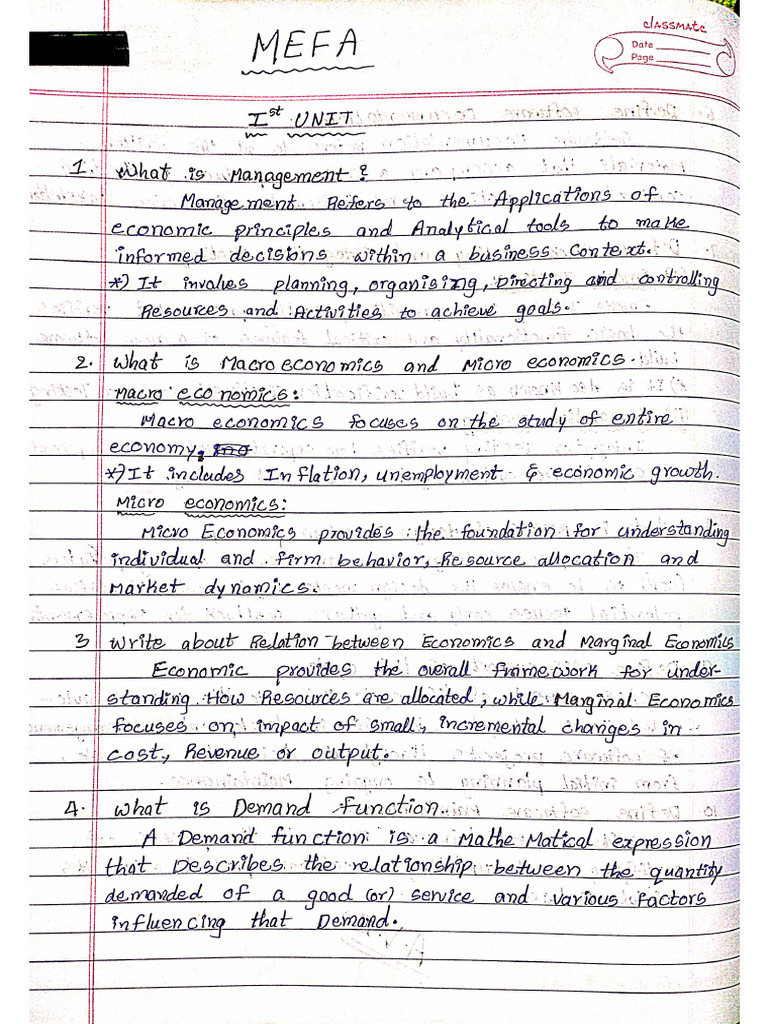 classmate
Date
Page
MEFA
Ist UNIT
1. What is Management?
Management Refers to the Applications of
economic principles and Analytical tools to make
informed decisions within a business Context.
*) It involves planning, organising, Directing and controlling
Resources and Activities to achieve goals.
2. What is Macroeconomics and Micro economics.
Macro economics:
Macro economics focuses on the study of entire
economy.
*) It includes Inflation, unemployment & economic growth.
Micro economics:
Micro Economics provides the foundation for understanding
individual and firm behavior, Resource allocation and
Market dynamics.
3 Write about Relation between Economics and Marginal Economics
Economic provides the overall framework for under-
standing How Resources are allocated, while Marginal Economics
focuses on impact of small, incremental changes in
cost, Revenue or output.
4. What is Demand function.
A Demand function is a Mathe Matical expression
that Describes the relationship between the quantity
demanded of a good (or) service and various factors
influencing that Demand.